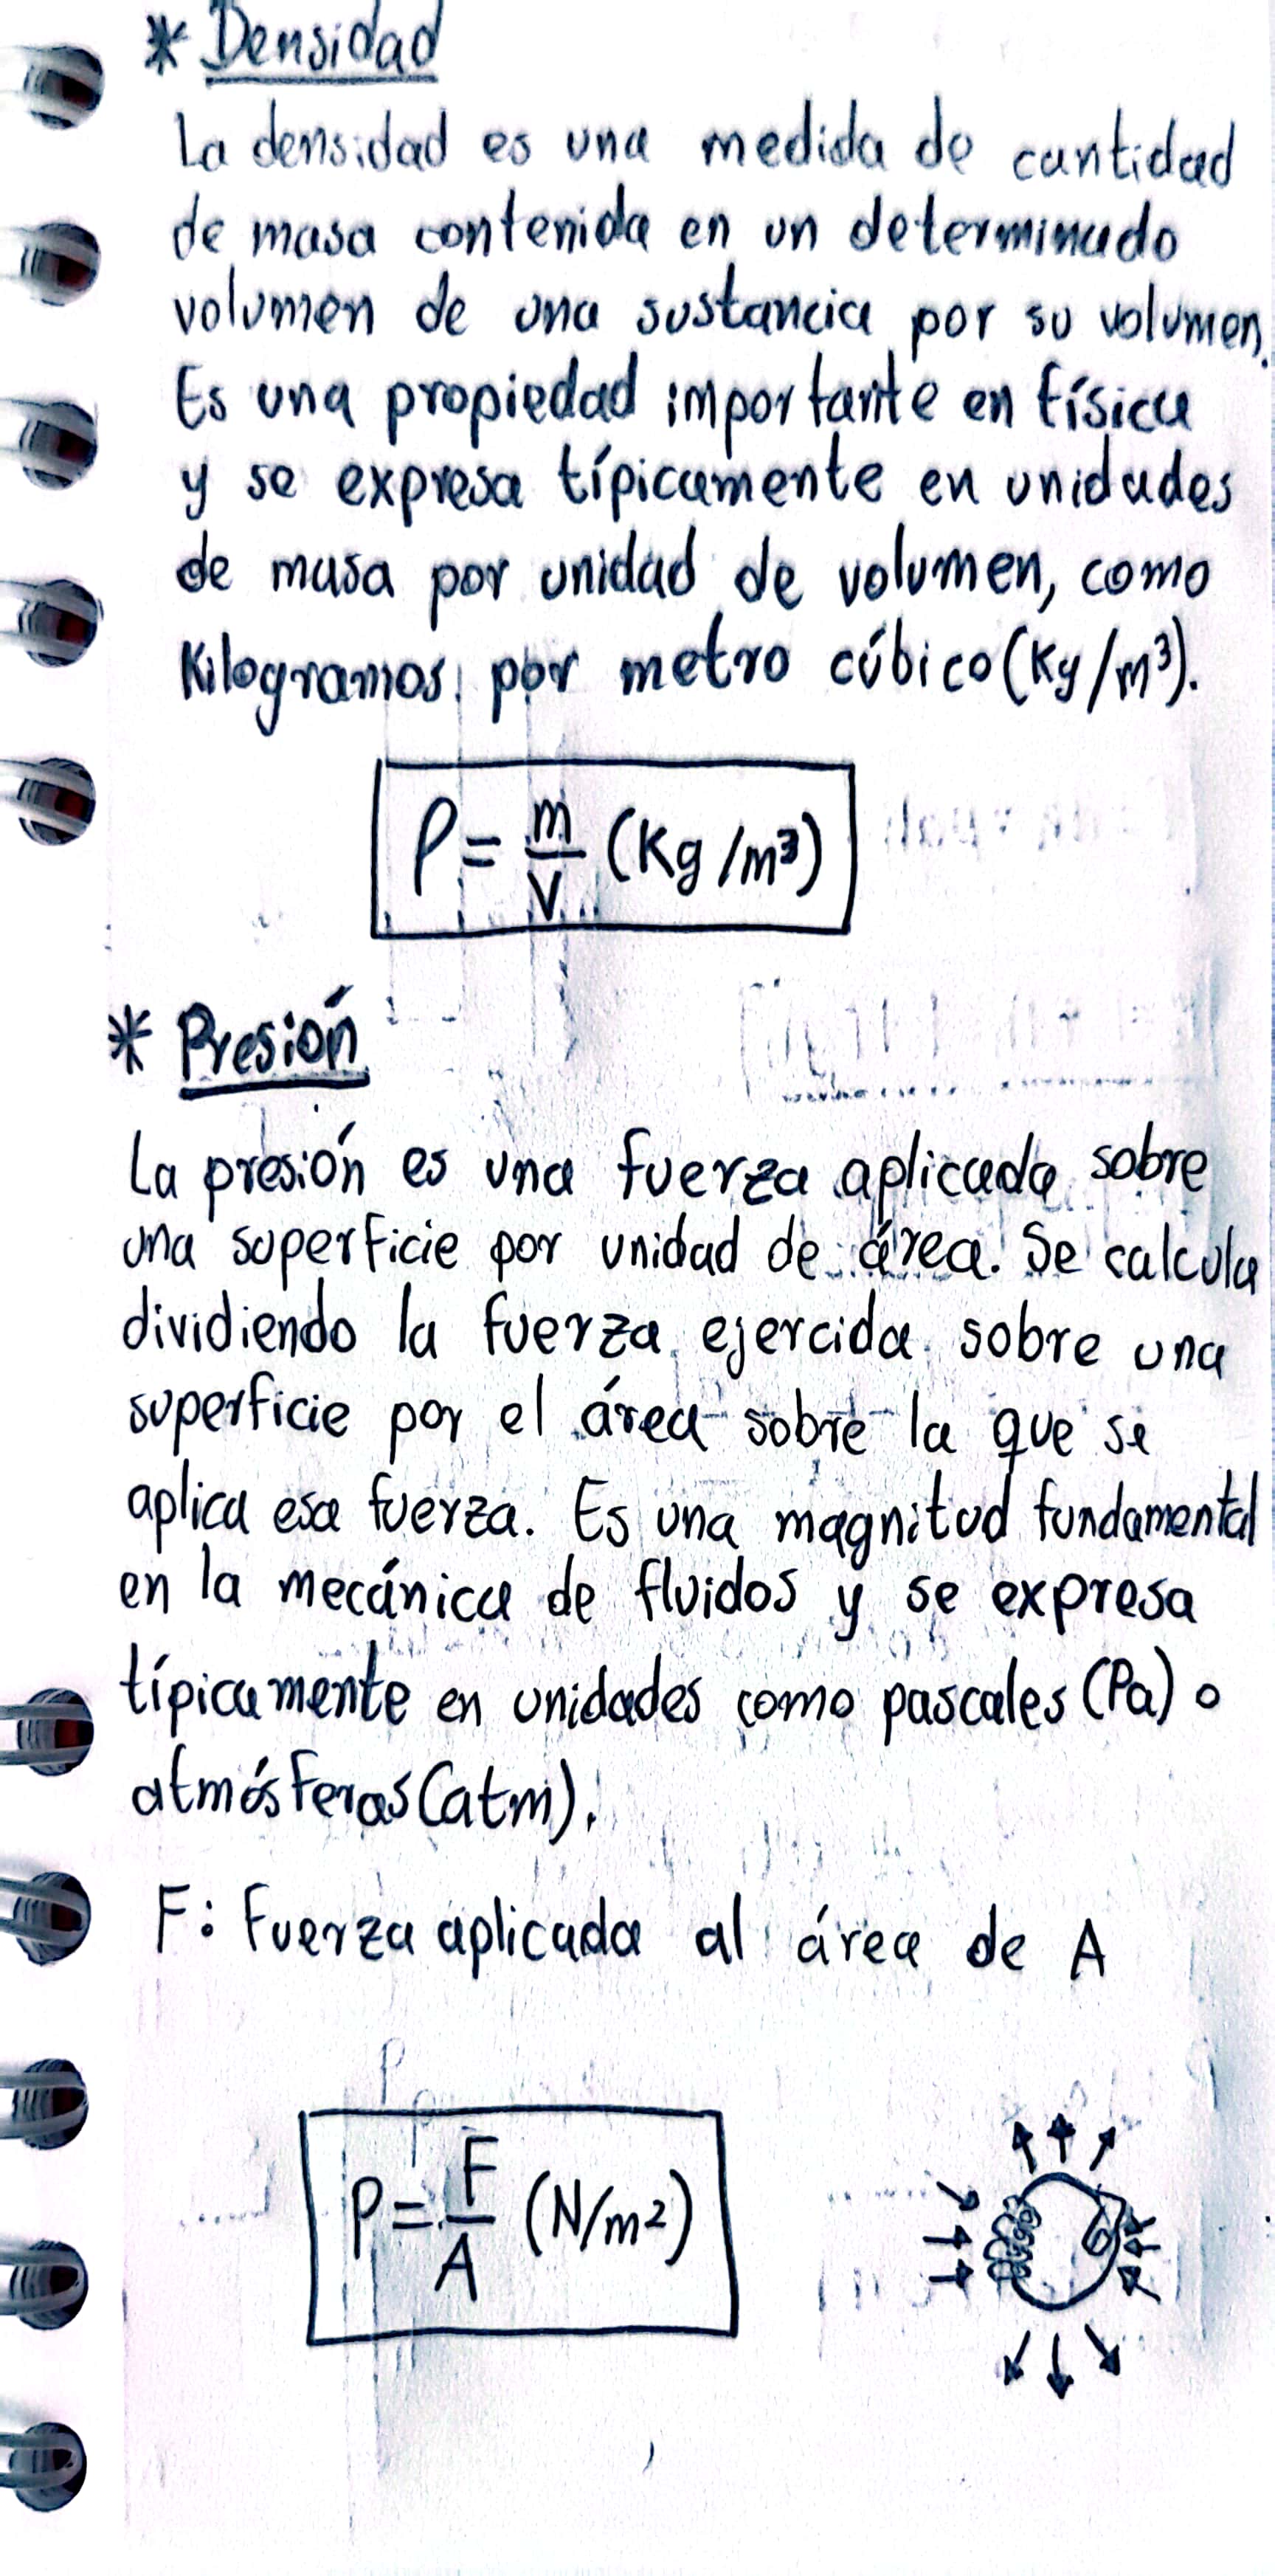 * Densidad
La densidad es una medida de cantidad
de masa contenida en un determinado
volumen de una sustancia por su volumen.
Es una propiedad importante en física
y se expresa típicamente en unidades
de masa por unidad de volumen, como
Kilogramos por metro cúbico (Kg/m³).
ρ = m/V (Kg/m³)
* Presión
La presión es una fuerza aplicada sobre
una superficie por unidad de área. Se calcula
dividiendo la fuerza ejercida sobre una
superficie por el área sobre la que se
aplica esa fuerza. Es una magnitud fundamental
en la mecánica de fluidos y se expresa
típicamente en unidades como pascales (Pa) o
atmósferas (atm).
F: Fuerza aplicada al área de A
P = F/A (N/m²)